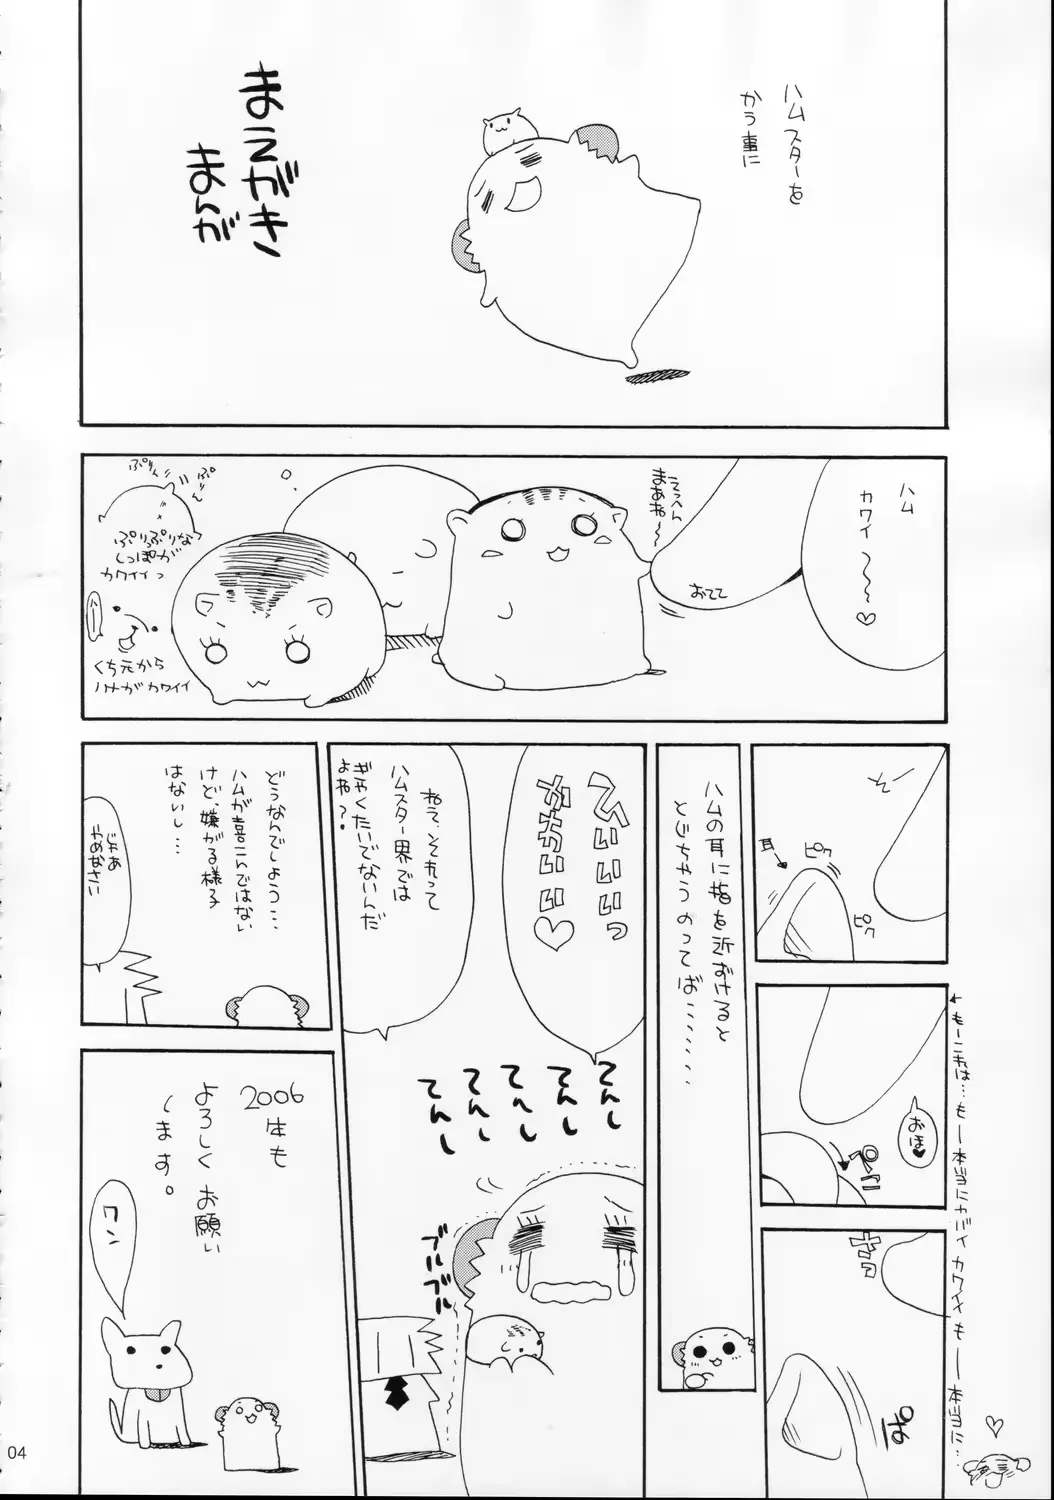 ハムスターを
かう事に
まえがき
まんが
ハム
カワイ〜〜〜♡
てっぺん
まあね〜
おてて
ぷりん
ぷりん
ぷりっぷりな
しっぽが
カワイイっ
くち元から
ハナがカワイイ
耳
ピク
ピク
おほ♥
ぺこ
ハムの耳に指を近ずけると
とじちゃうのってば………
へいいいっ
かわいいい♡
ねえ、それって
ハムスター界では
ぎゃくたいでないんだ
よね?。
てんし
てんし
てんし
てんし
てんし
ブルブル
ブルブル
どうなんでしょう…
ハムが喜こんではない
けど、嫌がる様子
はないし…
じゃあ
やめなさい
2006
年も
よろしくお願い
します。
ワン
←もーこれは…もー本当にヤバイカワイイもー本当に…
♡
04